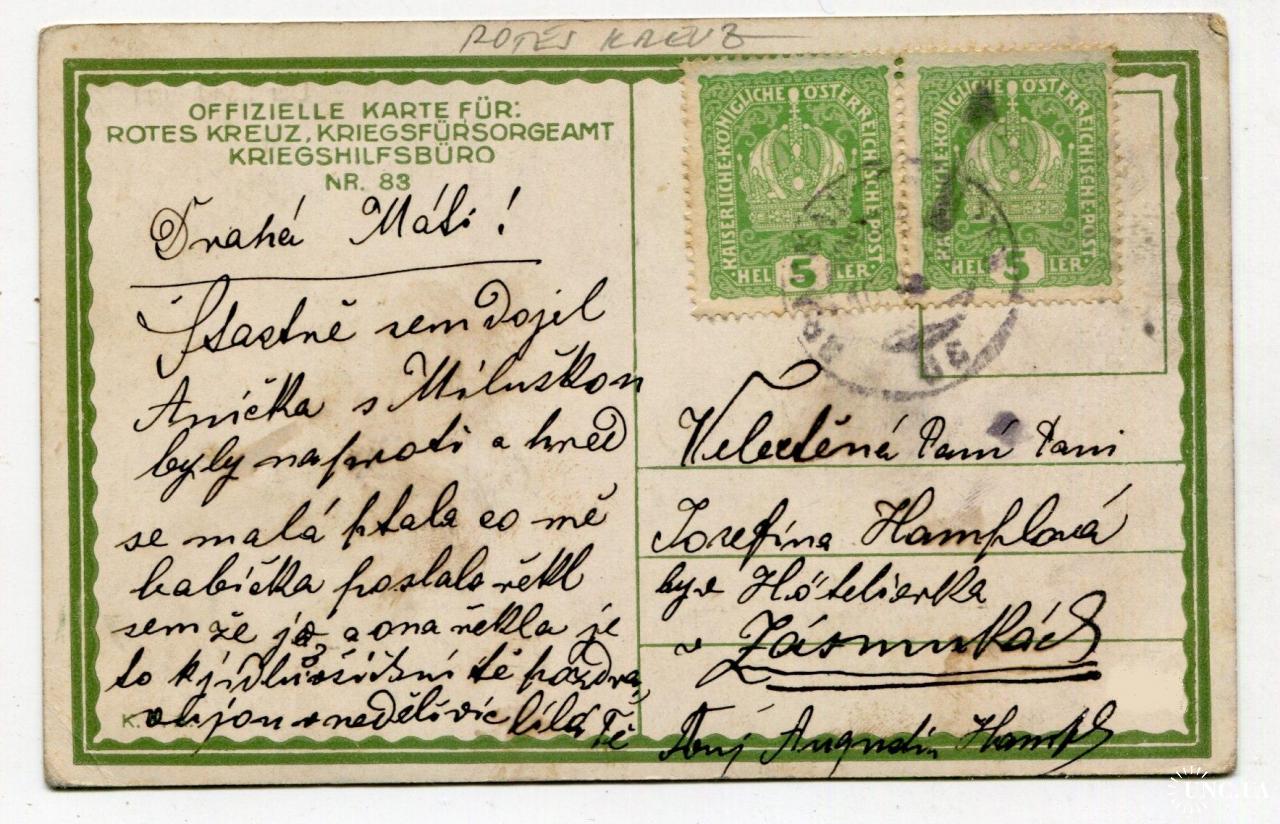 ROTES KREUZ
OFFIZIELLE KARTE FÜR:
ROTES KREUZ, KRIEGSFÜRSORGEAMT
KRIEGSHILFSBÜRO
NR. 83
KAISERLICHE KÖNIGLICHE ÖSTERREICHISCHE POST
5
HELLER
KAISERLICHE KÖNIGLICHE ÖSTERREICHISCHE POST
5
HELLER
Drahá Máti!
Šťastně sem dojel
Anička s Miluškou
byly naproti a hned
se malá ptala co mě
babička poslala řekl
sem že já a ona řekla je
to k jídlu všichni tě pozdra
vujou v neděli víc líbá Tě
Velectěná Paní Pani
Josefína Hamplová
byv Hôtelierka
v Zásmukách
Tvuj Augustin Hampl
K.
UNC.UA